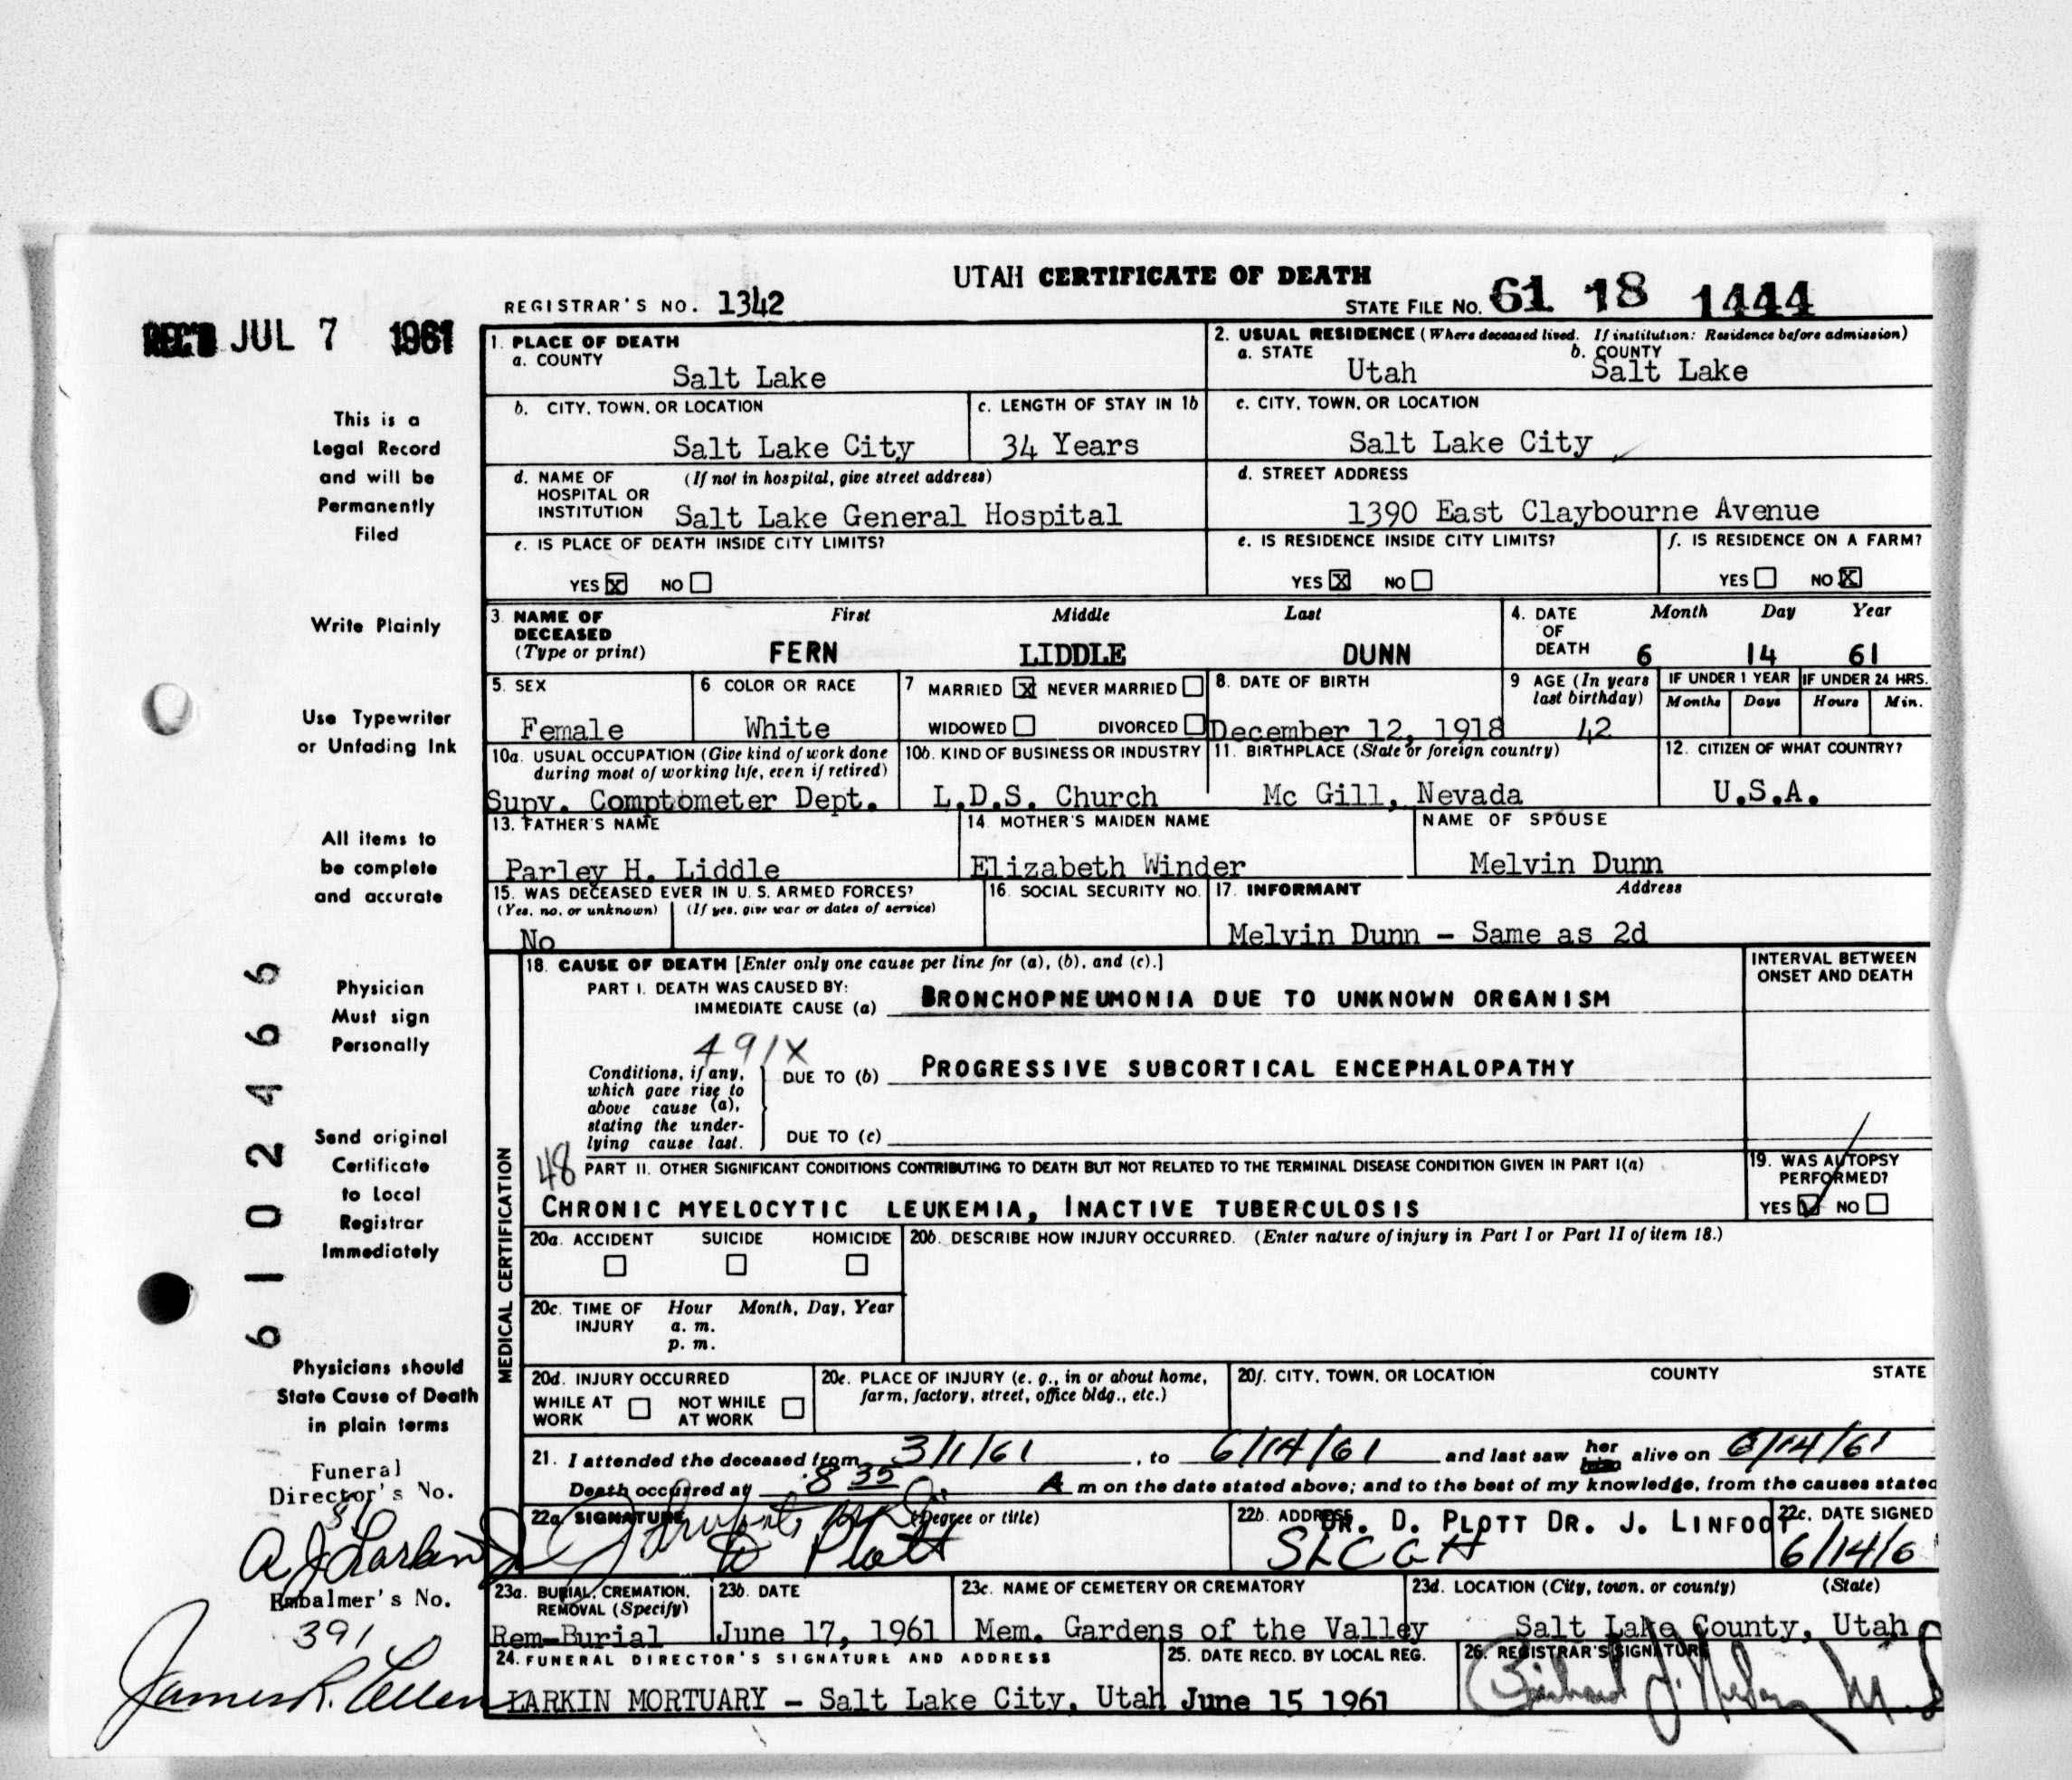 UTAH CERTIFICATE OF DEATH
REGISTRAR'S NO. 1342
STATE FILE NO. 61 18 1444
REC'D JUL 7 1961
This is a
Legal Record
and will be
Permanently
Filed
Write Plainly
Use Typewriter
or Unfading Ink
All items to
be complete
and accurate
Physician
Must sign
Personally
Send original
Certificate
to Local
Registrar
Immediately
Physicians should
State Cause of Death
in plain terms
Funeral
Director's No.
81
A J Larkin
Embalmer's No.
391
James R. Allen
6102466
1. PLACE OF DEATH
a. COUNTY
Salt Lake
2. USUAL RESIDENCE (Where deceased lived. If institution: Residence before admission)
a. STATE b. COUNTY
Utah Salt Lake
b. CITY, TOWN, OR LOCATION
Salt Lake City
c. LENGTH OF STAY IN 1b
34 Years
c. CITY, TOWN, OR LOCATION
Salt Lake City
d. NAME OF (If not in hospital, give street address)
HOSPITAL OR
INSTITUTION Salt Lake General Hospital
d. STREET ADDRESS
1390 East Claybourne Avenue
e. IS PLACE OF DEATH INSIDE CITY LIMITS?
YES X NO
e. IS RESIDENCE INSIDE CITY LIMITS?
YES X NO
f. IS RESIDENCE ON A FARM?
YES NO X
3. NAME OF First Middle Last
DECEASED
(Type or print) FERN LIDDLE DUNN
4. DATE Month Day Year
OF
DEATH 6 14 61
5. SEX
Female
6 COLOR OR RACE
White
7 MARRIED X NEVER MARRIED
WIDOWED DIVORCED
8. DATE OF BIRTH
December 12, 1918
9 AGE (In years
last birthday)
42
IF UNDER 1 YEAR IF UNDER 24 HRS.
Months Days Hours Min.
10a. USUAL OCCUPATION (Give kind of work done
during most of working life, even if retired)
Supv. Comptometer Dept.
10b. KIND OF BUSINESS OR INDUSTRY
L.D.S. Church
11. BIRTHPLACE (State or foreign country)
Mc Gill, Nevada
12. CITIZEN OF WHAT COUNTRY?
U.S.A.
13. FATHER'S NAME
Parley H. Liddle
14. MOTHER'S MAIDEN NAME
Elizabeth Winder
NAME OF SPOUSE
Melvin Dunn
15. WAS DECEASED EVER IN U. S. ARMED FORCES?
(Yes, no, or unknown) (If yes, give war or dates of service)
No
16. SOCIAL SECURITY NO.
17. INFORMANT Address
Melvin Dunn - Same as 2d
MEDICAL CERTIFICATION
18. CAUSE OF DEATH [Enter only one cause per line for (a), (b), and (c).]
INTERVAL BETWEEN
ONSET AND DEATH
PART I. DEATH WAS CAUSED BY:
IMMEDIATE CAUSE (a) BRONCHOPNEUMONIA DUE TO UNKNOWN ORGANISM
491X
Conditions, if any,
which gave rise to
above cause (a),
stating the under-
lying cause last.
DUE TO (b) PROGRESSIVE SUBCORTICAL ENCEPHALOPATHY
DUE TO (c)
48
PART II. OTHER SIGNIFICANT CONDITIONS CONTRIBUTING TO DEATH BUT NOT RELATED TO THE TERMINAL DISEASE CONDITION GIVEN IN PART I(a)
CHRONIC MYELOCYTIC LEUKEMIA, INACTIVE TUBERCULOSIS
19. WAS AUTOPSY
PERFORMED?
YES NO
20a. ACCIDENT SUICIDE HOMICIDE
20b. DESCRIBE HOW INJURY OCCURRED. (Enter nature of injury in Part I or Part II of item 18.)
20c. TIME OF Hour Month, Day, Year
INJURY a. m.
p. m.
20d. INJURY OCCURRED
WHILE AT NOT WHILE
WORK AT WORK
20e. PLACE OF INJURY (e. g., in or about home,
farm, factory, street, office bldg., etc.)
20f. CITY, TOWN, OR LOCATION COUNTY STATE
21. I attended the deceased from 3/1/61, to 6/14/61 and last saw her him alive on 6/14/61
Death occurred at 8 35 A m on the date stated above; and to the best of my knowledge, from the causes stated
22a. SIGNATURE (Degree or title)
D Plott
22b. ADDRESS DR. D. PLOTT DR. J. LINFOOT
SLCGH
22c. DATE SIGNED
6/14/6
23a. BURIAL, CREMATION,
REMOVAL (Specify)
Rem-Burial
23b. DATE
June 17, 1961
23c. NAME OF CEMETERY OR CREMATORY
Mem. Gardens of the Valley
23d. LOCATION (City, town, or county) (State)
Salt Lake County, Utah
24. FUNERAL DIRECTOR'S SIGNATURE AND ADDRESS
LARKIN MORTUARY - Salt Lake City, Utah
25. DATE RECD. BY LOCAL REG.
June 15 1961
26. REGISTRAR'S SIGNATURE